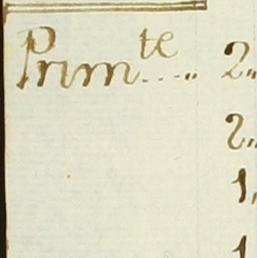 Prim^te..... 2..
2..
1,
1